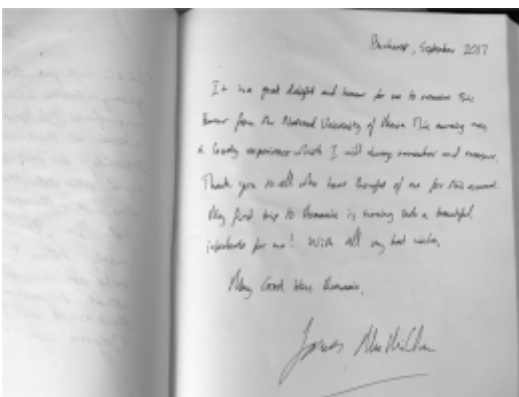 Bucharest, September 2017
It is a great delight and honour for me to receive this
honour from the National University of Music. This morning was
a lovely experience which I will always remember and treasure.
Thank you to all who have thought of me for this award.
My first trip to Romania is turning into a beautiful
for me! With all my best wishes,
May God bless Romania,
James MacMillan